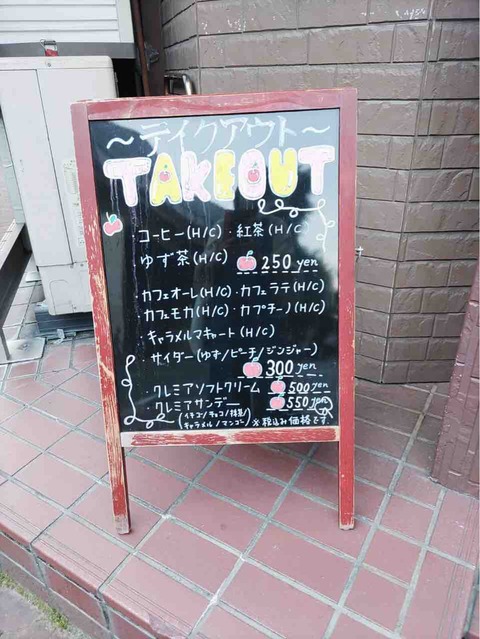 〜テイクアウト〜
TAKEOUT
・コーヒー(H/C)・紅茶(H/C)
ゆず茶(H/C)
250 yen
・カフェオーレ(H/C)・カフェラテ(H/C)
・カフェモカ(H/C)・カプチーノ(H/C)
・キャラメルマキャート(H/C)
・サイダー(ゆず/ピーチ/ジンジャー)
300 yen
・クレミアソフトクリーム 500yen
・クレミアサンデー 550yen
(イチゴ/チョコ/抹茶/
キャラメル/マンゴー) ※税込み価格です。